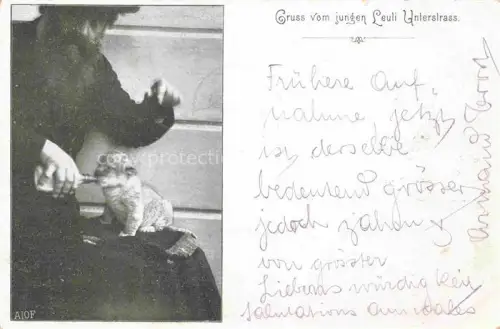 Gruss vom jungen Leuli Unterstrass.
Frühere Auf-
nahme jetzt
ist derselbe
bedeutend grösser
jedoch zahm &
von grösster
Liebenswürdigkeit
Salutations amicales
Armand
AIOF